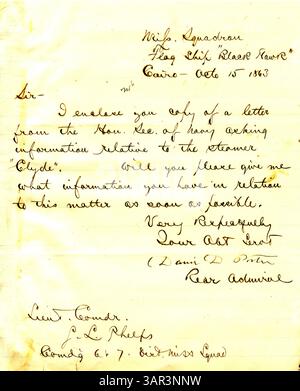 Miss. Squadron
Flag Ship "Black Hawk"
Cairo - Octo 15 1863
Sir-
I enclose you copy of a letter
from the Hon. Sec. of Navy asking
information relative to the steamer
"Clyde". Will you please give me
what information you have in relation
to this matter as soon as possible.
Very Respectfully
Your Obt Servt
(David D Porter
Rear Admiral
Lieut. Comdr.
S. L. Phelps
Comdg 6 & 7 Dist Miss Squad
alamy
Image ID: 3AR3NNW
www.alamy.com